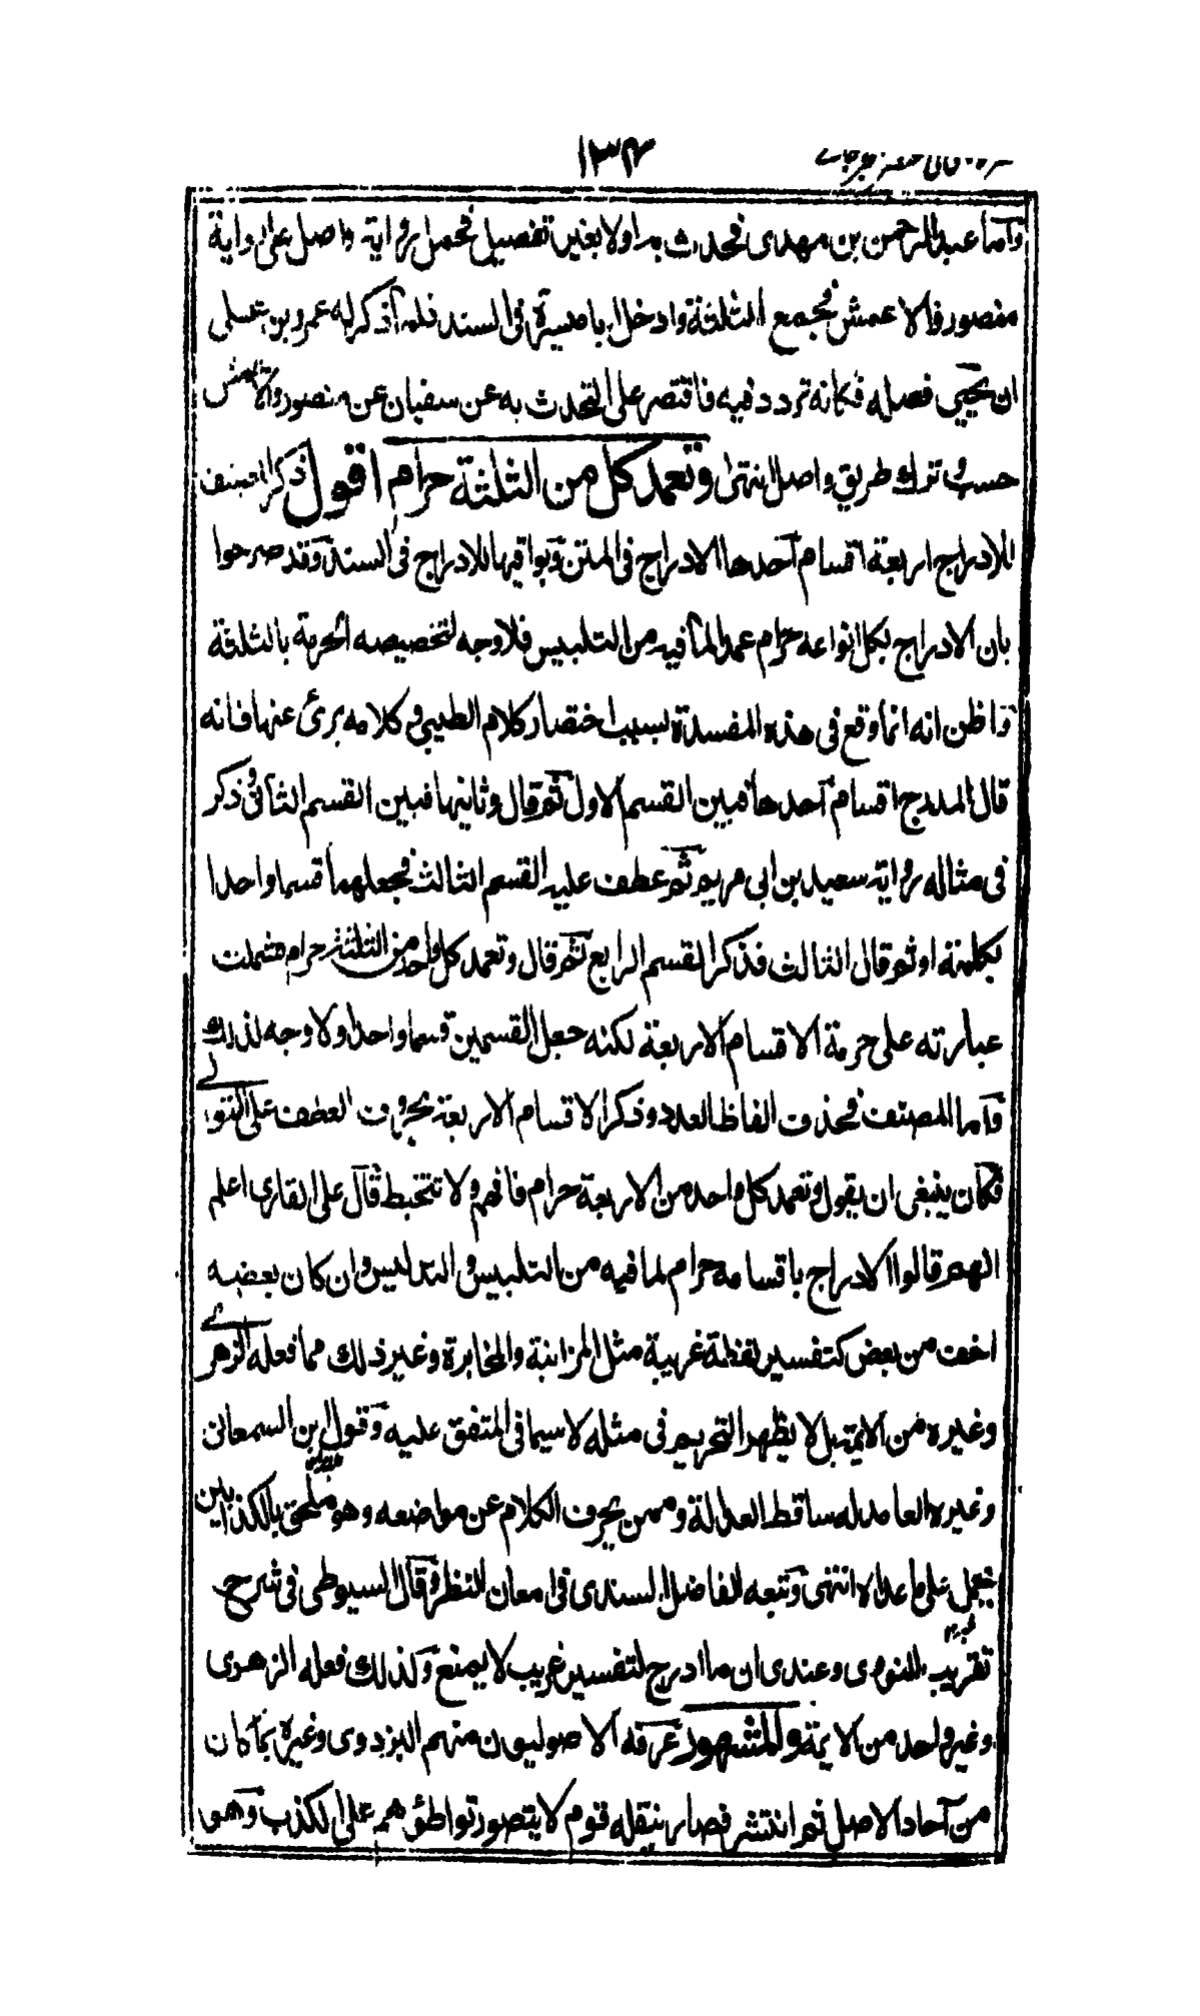 ١٣٤
وآما عبد الرحمن بن مهدى فحدث به اولا بغير تفصيل فحمل رواية واصل على رواية
منصور والاعمش فجمع الثلثة وادخل ابا ميسرة فى السند فلما ذكر له عمرو بن على
ان يحيى فصله فكانه تردد فيه فاقتصر على التحدث به عن سفيان عن منصور والاعمش
حسب وترك طريق واصل انتهى وتعمد كل من الثلثة حرام اقول ذكر المصنف
للادراج اربعة اقسام آحدها الادراج فى المتن وبواقيها للادراج فى السند وقد صرحوا
بان الادراج بكل انواعه حرام عمدا لما فيه من التلبيس فلا وجه لتخصيصه الحرمة بالثلثة
واظن انه انما وقع فى هذه المفسدة لسبب اختصار كلام الطيبي وكلامه برئ عنها فانه
قال المدرج اقسام آحدها فبين القسم الاول ثم قال وثانيها فبين القسم الثانى وذكر
فى مثاله رواية سعيد بن ابى مريم ثم عطف عليه القسم الثالث فجعلهما قسما واحدا
بكلمة او ثم قال الثالث فذكر القسم الرابع ثم قال وتعمد كل واحد من الثلثة حرام فشملت
عبارته على حرمة الاقسام الاربعة لكنه جعل القسمين قسما واحدا ولا وجه لذلك
وآما المصنف فحذف الفاظ العدد وذكر الاقسام الاربعة بحروف العطف على التوالے
فكان ينبغى ان يقول وتعمد كل واحد من الاربعة حرام فافهم ولا تتخبط قال على القارى اعلم
انهم قالوا الادراج باقسامه حرام لما فيه من التلبيس والتدليس وان كان بعضه
اخف من بعض كتفسير لفظة غريبة مثل المزابنة والمخابرة وغير ذلك مما فعله الزهرے
وغيره من الائمة بل لا يظهر التحريم فى مثله لا سيما فى المتفق عليه وقول ابن السمعانى
وغيره العامد له ساقط العدالة وممن يحرف الكلام عن مواضعه وهو ملحق بالكذابين
يحمل على ما عداه انتهى وتبعه الفاضل السندى فى امعان النظر وقال السيوطى فى شرح
تقريب النووى وعندى ان ما ادرج لتفسير غريب لا يمنع وكذلك فعله الزهرى
وغير واحد من الائمة والمشهور عرفه الاصوليون منهم البزدوى وغيره بما كان
من آحاد الاصل ثم انتشر فصار ينقله قوم لا يتصور تواطؤهم على الكذب وهو